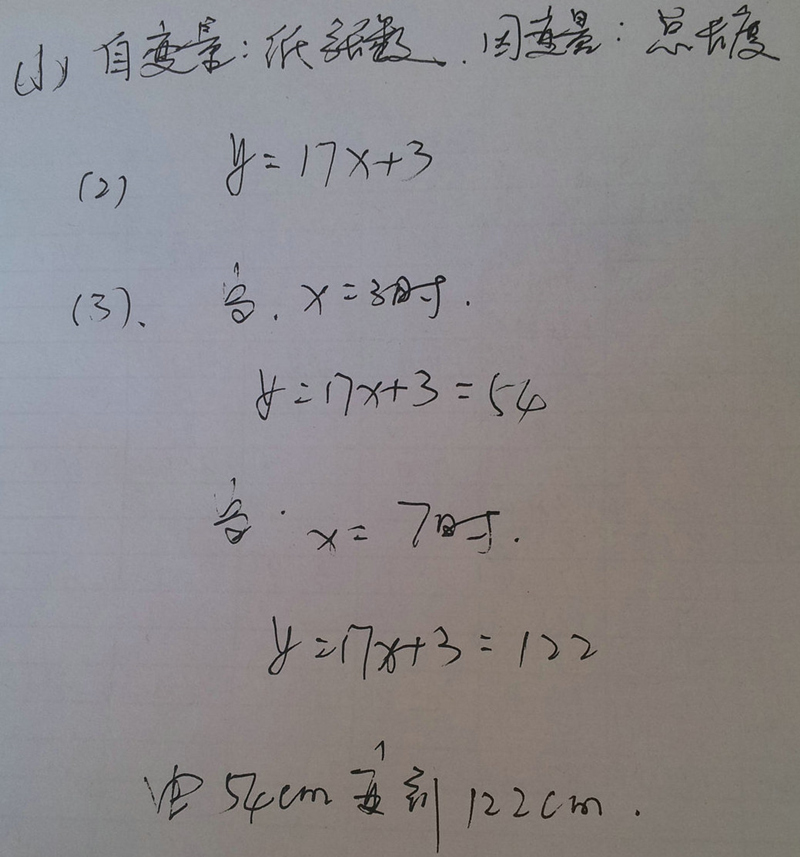 (1) 自变量:纸张数. 因变量:总长度
(2) y=17x+3
(3)、当.x=3时.
y=17x+3=54
当.x=7时.
y=17x+3=122
由54cm变到122cm.